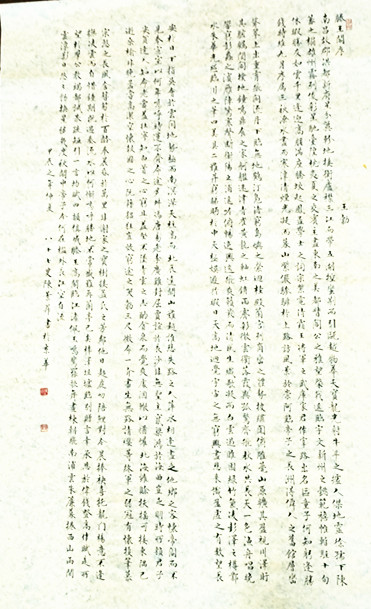 滕王閣序
王勃
南昌故郡洪都新府星分翼軫地接衡廬襟三江而帶五湖控蠻荊而引甌越物華天寶龍光射牛斗之墟人傑地靈徐孺下陳
蕃之榻雄州霧列俊彩星馳臺隍枕夷夏之交賓主盡東南之美都督閻公之雅望棨戟遙臨宇文新州之懿範襜帷暫駐十旬
休暇勝友如雲千里逢迎高朋滿座騰蛟起鳳孟學士之詞宗紫電清霜王將軍之武庫家君作宰路出名區童子何知躬逢勝
餞時維九月序屬三秋潦水盡而寒潭清煙光凝而暮山紫儼驂騑於上路訪風景於崇阿臨帝子之長洲得仙人之舊館層巒
聳翠上出重霄飛閣流丹下臨無地鶴汀鳧渚窮島嶼之縈迴桂殿蘭宮列岡巒之體勢披繡闥俯雕甍山原曠其盈視川澤盱
其駭矚閭閻撲地鐘鳴鼎食之家舸艦迷津青雀黃龍之舳虹銷雨霽彩徹雲衢落霞與孤鶩齊飛秋水共長天一色漁舟唱晚
響窮彭蠡之濱雁陣驚寒聲斷衡陽之浦遙吟俯暢逸興遄飛爽籟發而清風生纖歌凝而白雲遏睢園綠竹氣淩彭澤之樽鄴
水朱華光照臨川之筆四美具二難并窮睇眄於中天極娛遊於暇日天高地迥覺宇宙之無窮興盡悲來識盈虛之有數望長
安於日下指吳會於雲間地勢極而南溟深天柱高而北辰遠關山難越誰悲失路之人萍水相逢盡是他鄉之客懷帝閽而不
見奉宣室以何年嗚呼時運不齊命途多舛馮唐易老李廣難封屈賈誼於長沙非無聖主竄梁鴻於海曲豈乏明時所賴君子
安貧達人知命老當益壯寧知白首之心窮且益堅不墜青雲之志酌貪泉而覺爽處涸轍以猶懽北海雖賒扶搖可接東隅已
逝桑榆非晚孟嘗高潔空懷報國之心阮籍猖狂豈效窮途之哭勃三尺微命一介書生無路請纓等終軍之弱冠有懷投筆慕
宗愨之長風舍簪笏於百齡奉晨昏於萬里非謝家之寶樹接孟氏之芳鄰他日趨庭叨陪鯉對今茲捧袂喜托龍門楊意不逢
撫淩雲而自惜鍾期既遇奏流水以何慚嗚呼勝地不常盛筵難再蘭亭已矣梓澤丘墟臨別贈言幸承恩於偉餞登高作賦是所
望於群公敢竭鄙懷恭疏短引一言均賦四韻俱成滕王高閣臨江渚佩玉鳴鸞罷歌舞畫棟朝飛南浦雲朱簾暮捲西山雨閒
雲潭影日悠悠物換星移幾度秋閣中帝子今何在檻外長江空自流
甲辰之年仲夏
八十七叟陳 書於京華